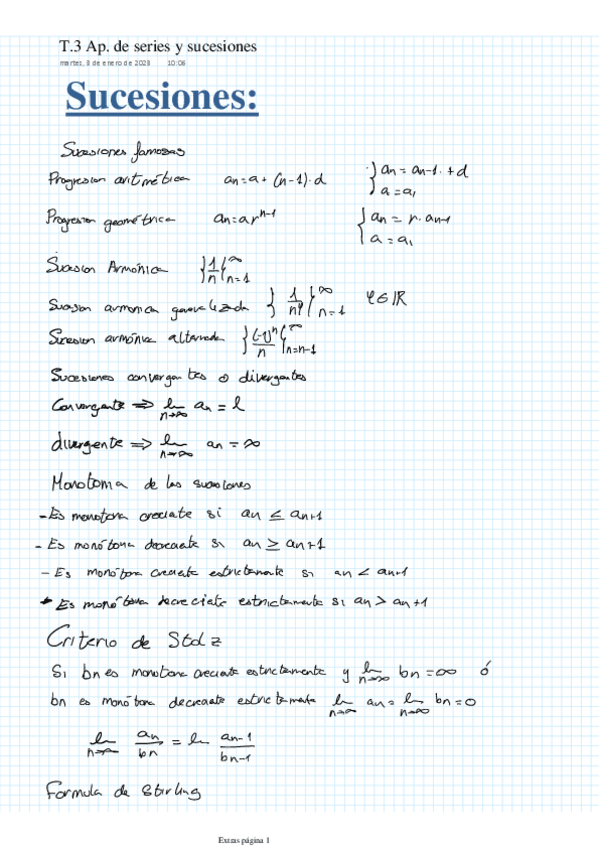 T.3 Ap. de series y sucesiones
martes, 3 de enero de 2023 10:06
Sucesiones:
Sucesiones famosas
Progresion aritmética an=a+(n-1)·d } an = an-1 + d
a = a₁
Progresion geométrica an=a r^(n-1) { an = r·an-1
a = a₁
Sucesion Armónica {1/n}_(n=1)^∞
Sucesion armonica generalizada {1/n^φ}_(n=1)^∞ φ∈ℝ
Sucesion armónica alternada {(-1)^n/n}_(n=n-1)^∞
Sucesiones convergentes o divergentes
Convergente ⇒ lim_(n→∞) an = l
divergente ⇒ lim_(n→∞) an = ∞
Monotonia de las sucesiones
- Es monotona creciate si an ≤ an+1
- Es monótona decreciate si an ≥ an+1
- Es monótona creciate estrictamente si an < an+1
- Es monótona decreciate estrictamente si an > an+1
Criterio de Stolz
Si bn es monotona creciate estrictamente y lim_(n→∞) bn = ∞ ó
bn es monótona decreciate estrictamente lim_(n→∞) an = lim_(n→∞) bn = 0
lim_(n→∞) an/bn = lim an-1/bn-1
Formula de Stirling
Extras página 1